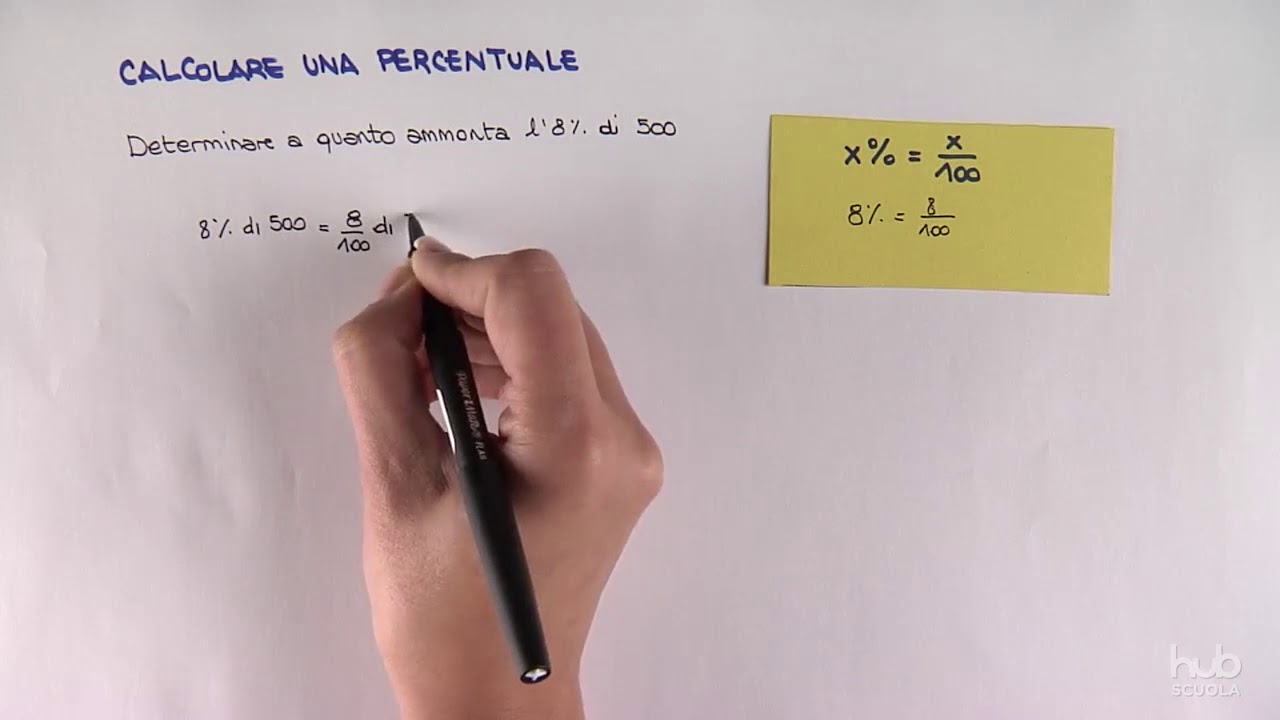 CALCOLARE UNA PERCENTUALE
Determinare a quanto ammonta l'8% di 500
8% di 500 = 8/100 di
x% = x/100
8% = 8/100
hub
SCUOLA